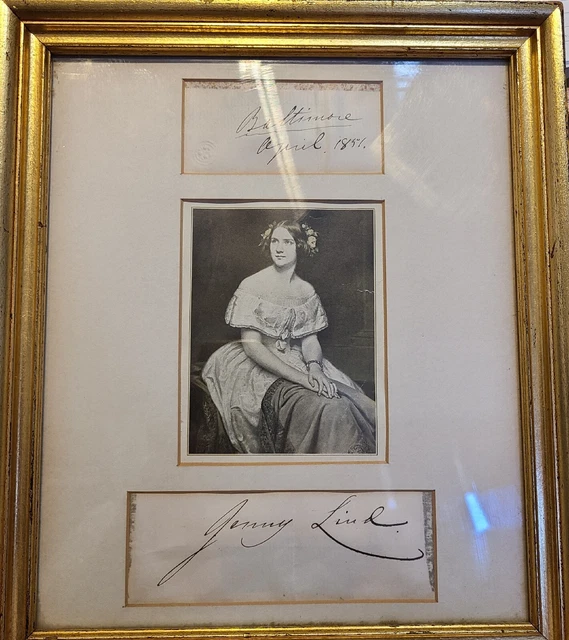 Baltimore
April. 1851.
Jenny Lind.